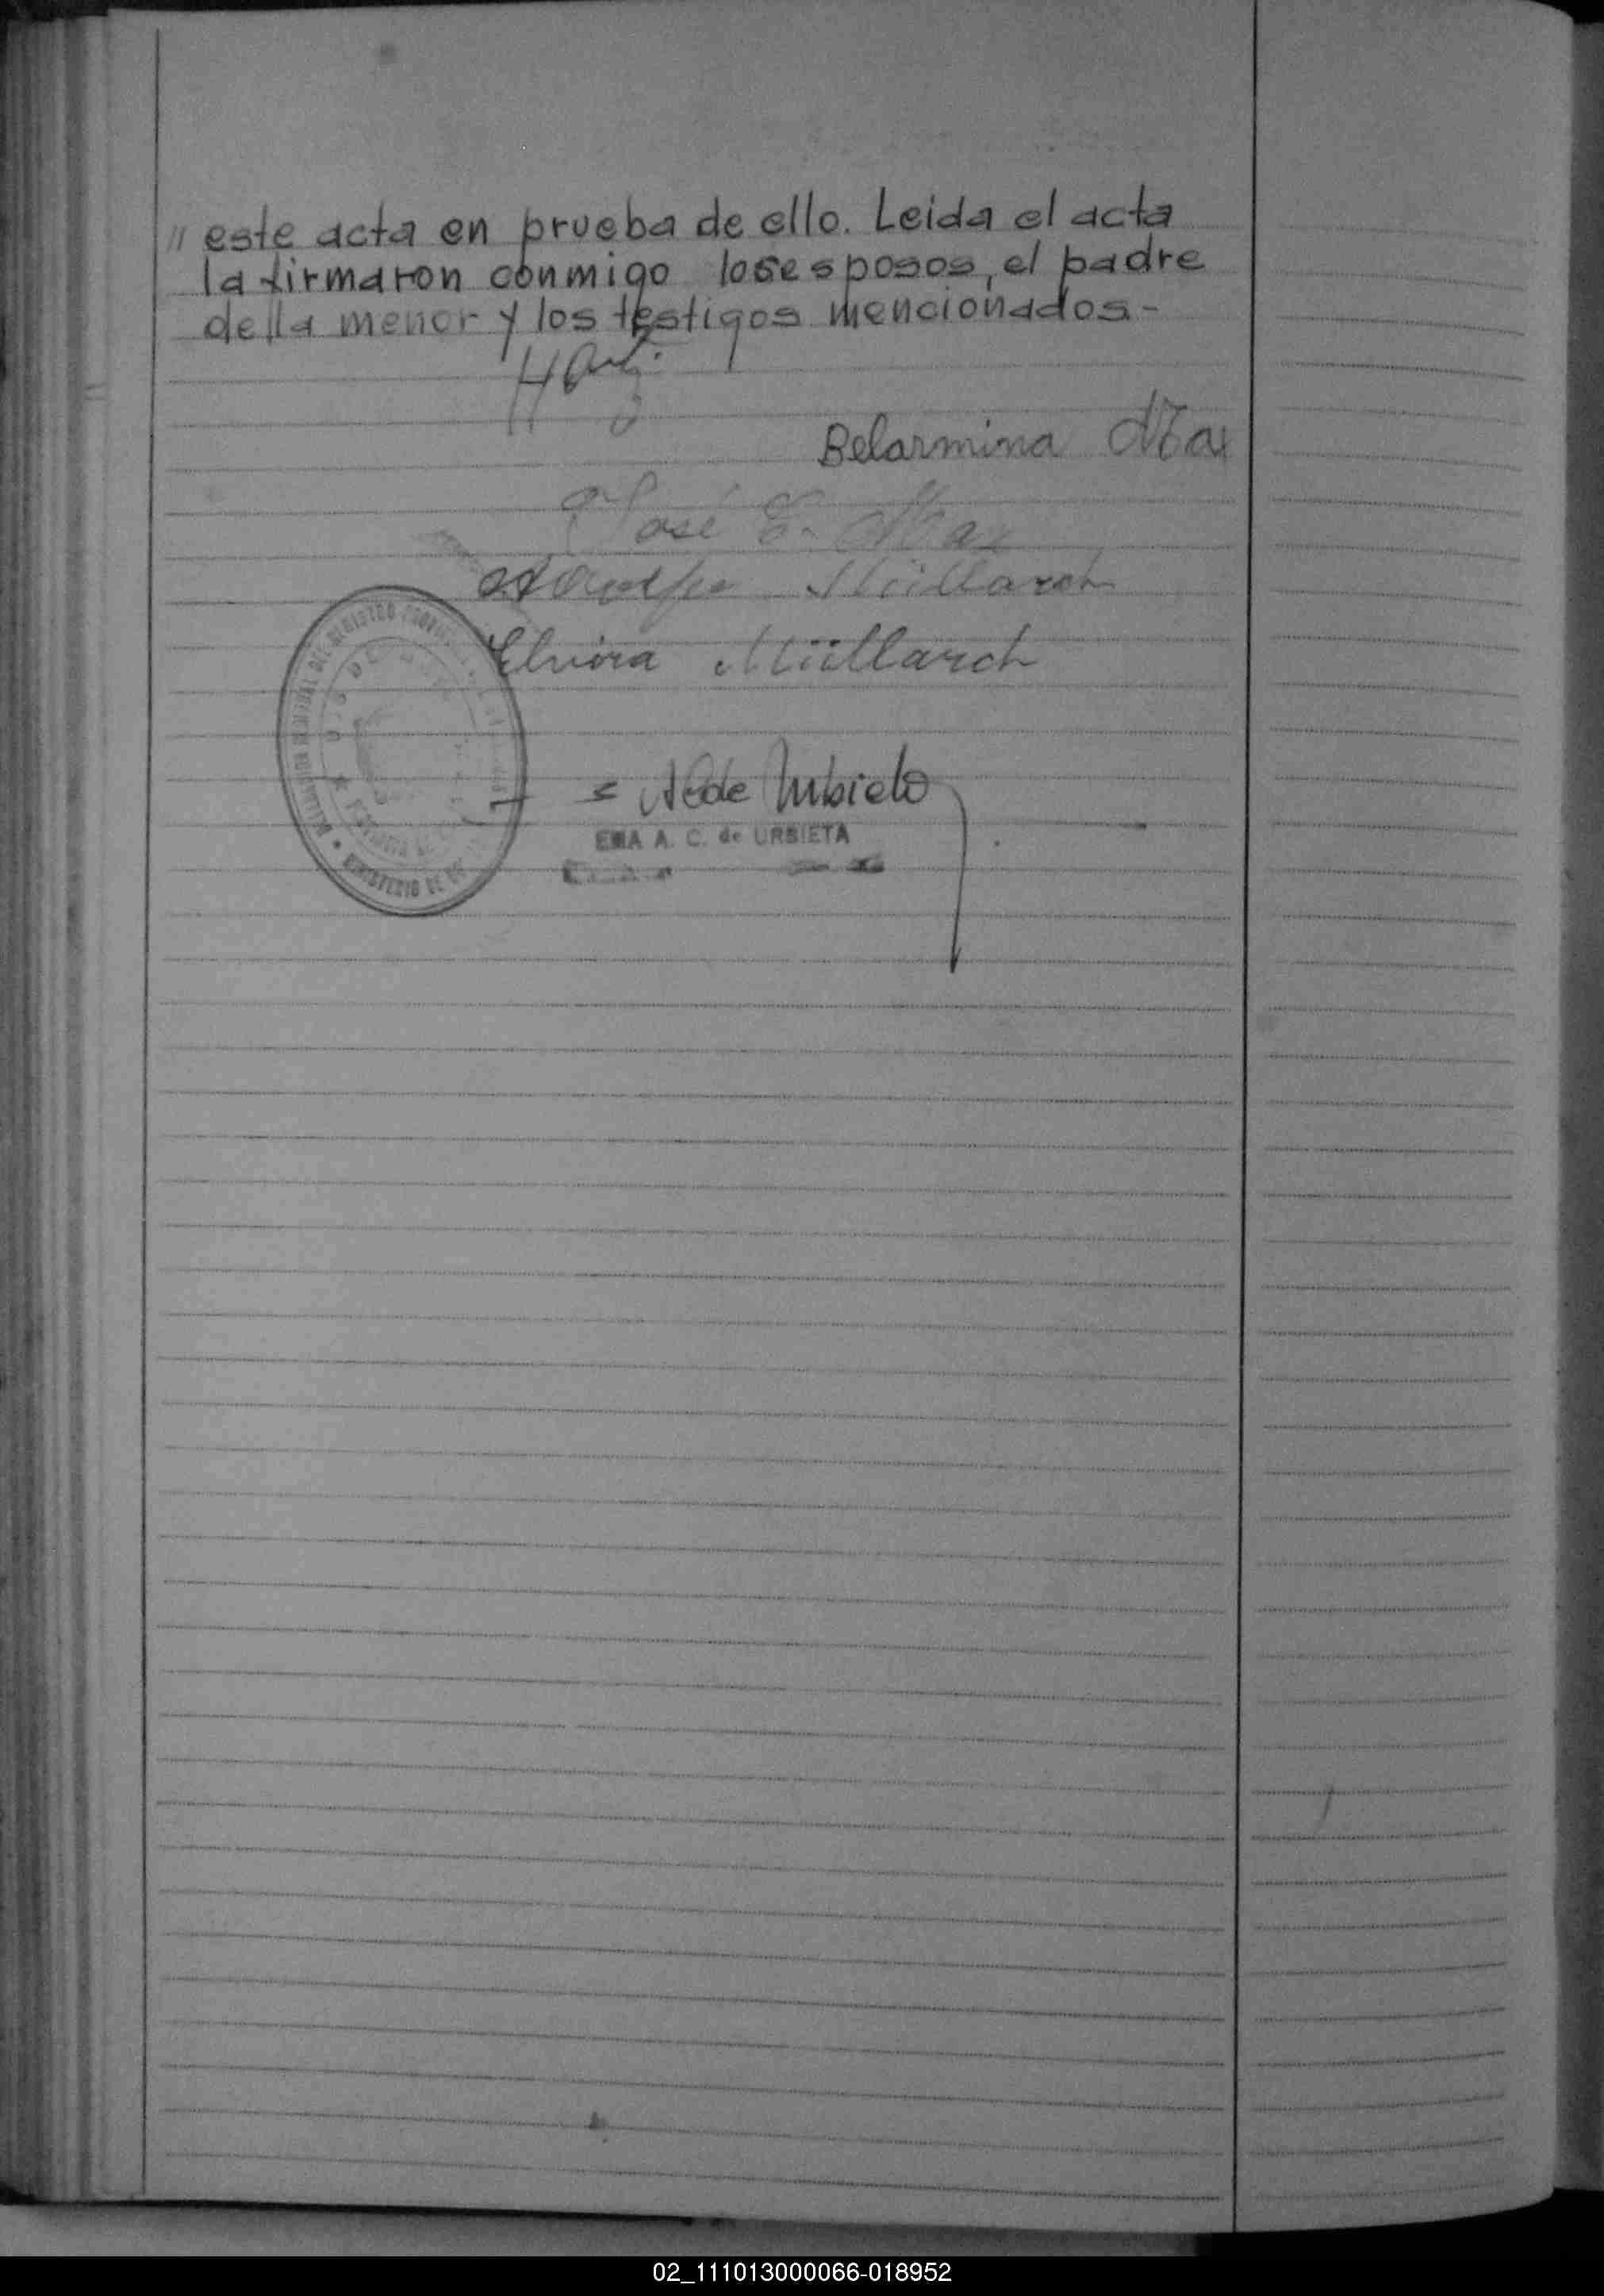 // este acta en prueba de ello. Leida el acta
la firmaron conmigo los esposos, el padre
della menor y los testigos mencionados.-
Belarmina Max
José E. Max
Adolfo Müllarch
Elvira Müllarch
de Urbieta
EMA A. C. de URBIETA
DEL REGISTRO
MINISTERIO DE
02_111013000066-018952